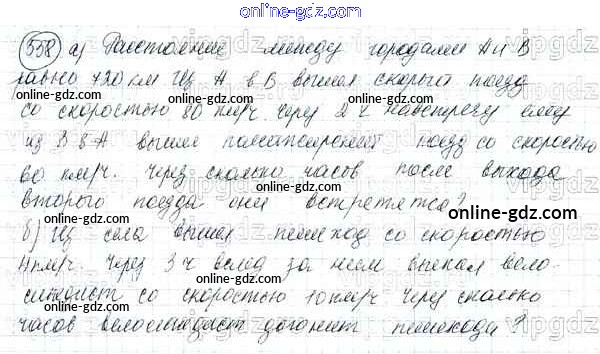 online-gdz.com
558 а) Расстояние между городами А и В
равно 720 км Из А в В вышел скорый поезд
со скоростью 80 км/ч. Через 2 ч навстречу ему
из В в А вышел пассажирский поезд со скоростью
60 км/ч. Через сколько часов после выхода
второго поезда они встретятся?
б) Из села вышел пешеход со скоростью
4 км/ч. Через 3 ч вслед за ним выехал вело-
сипедист со скоростью 10 км/ч Через сколько
часов велосипедист догонит пешехода?
online-gdz.com
online-gdz.com
online-gdz.com
online-gdz.com
online-gdz.com
online-gdz.com
online-gdz.com